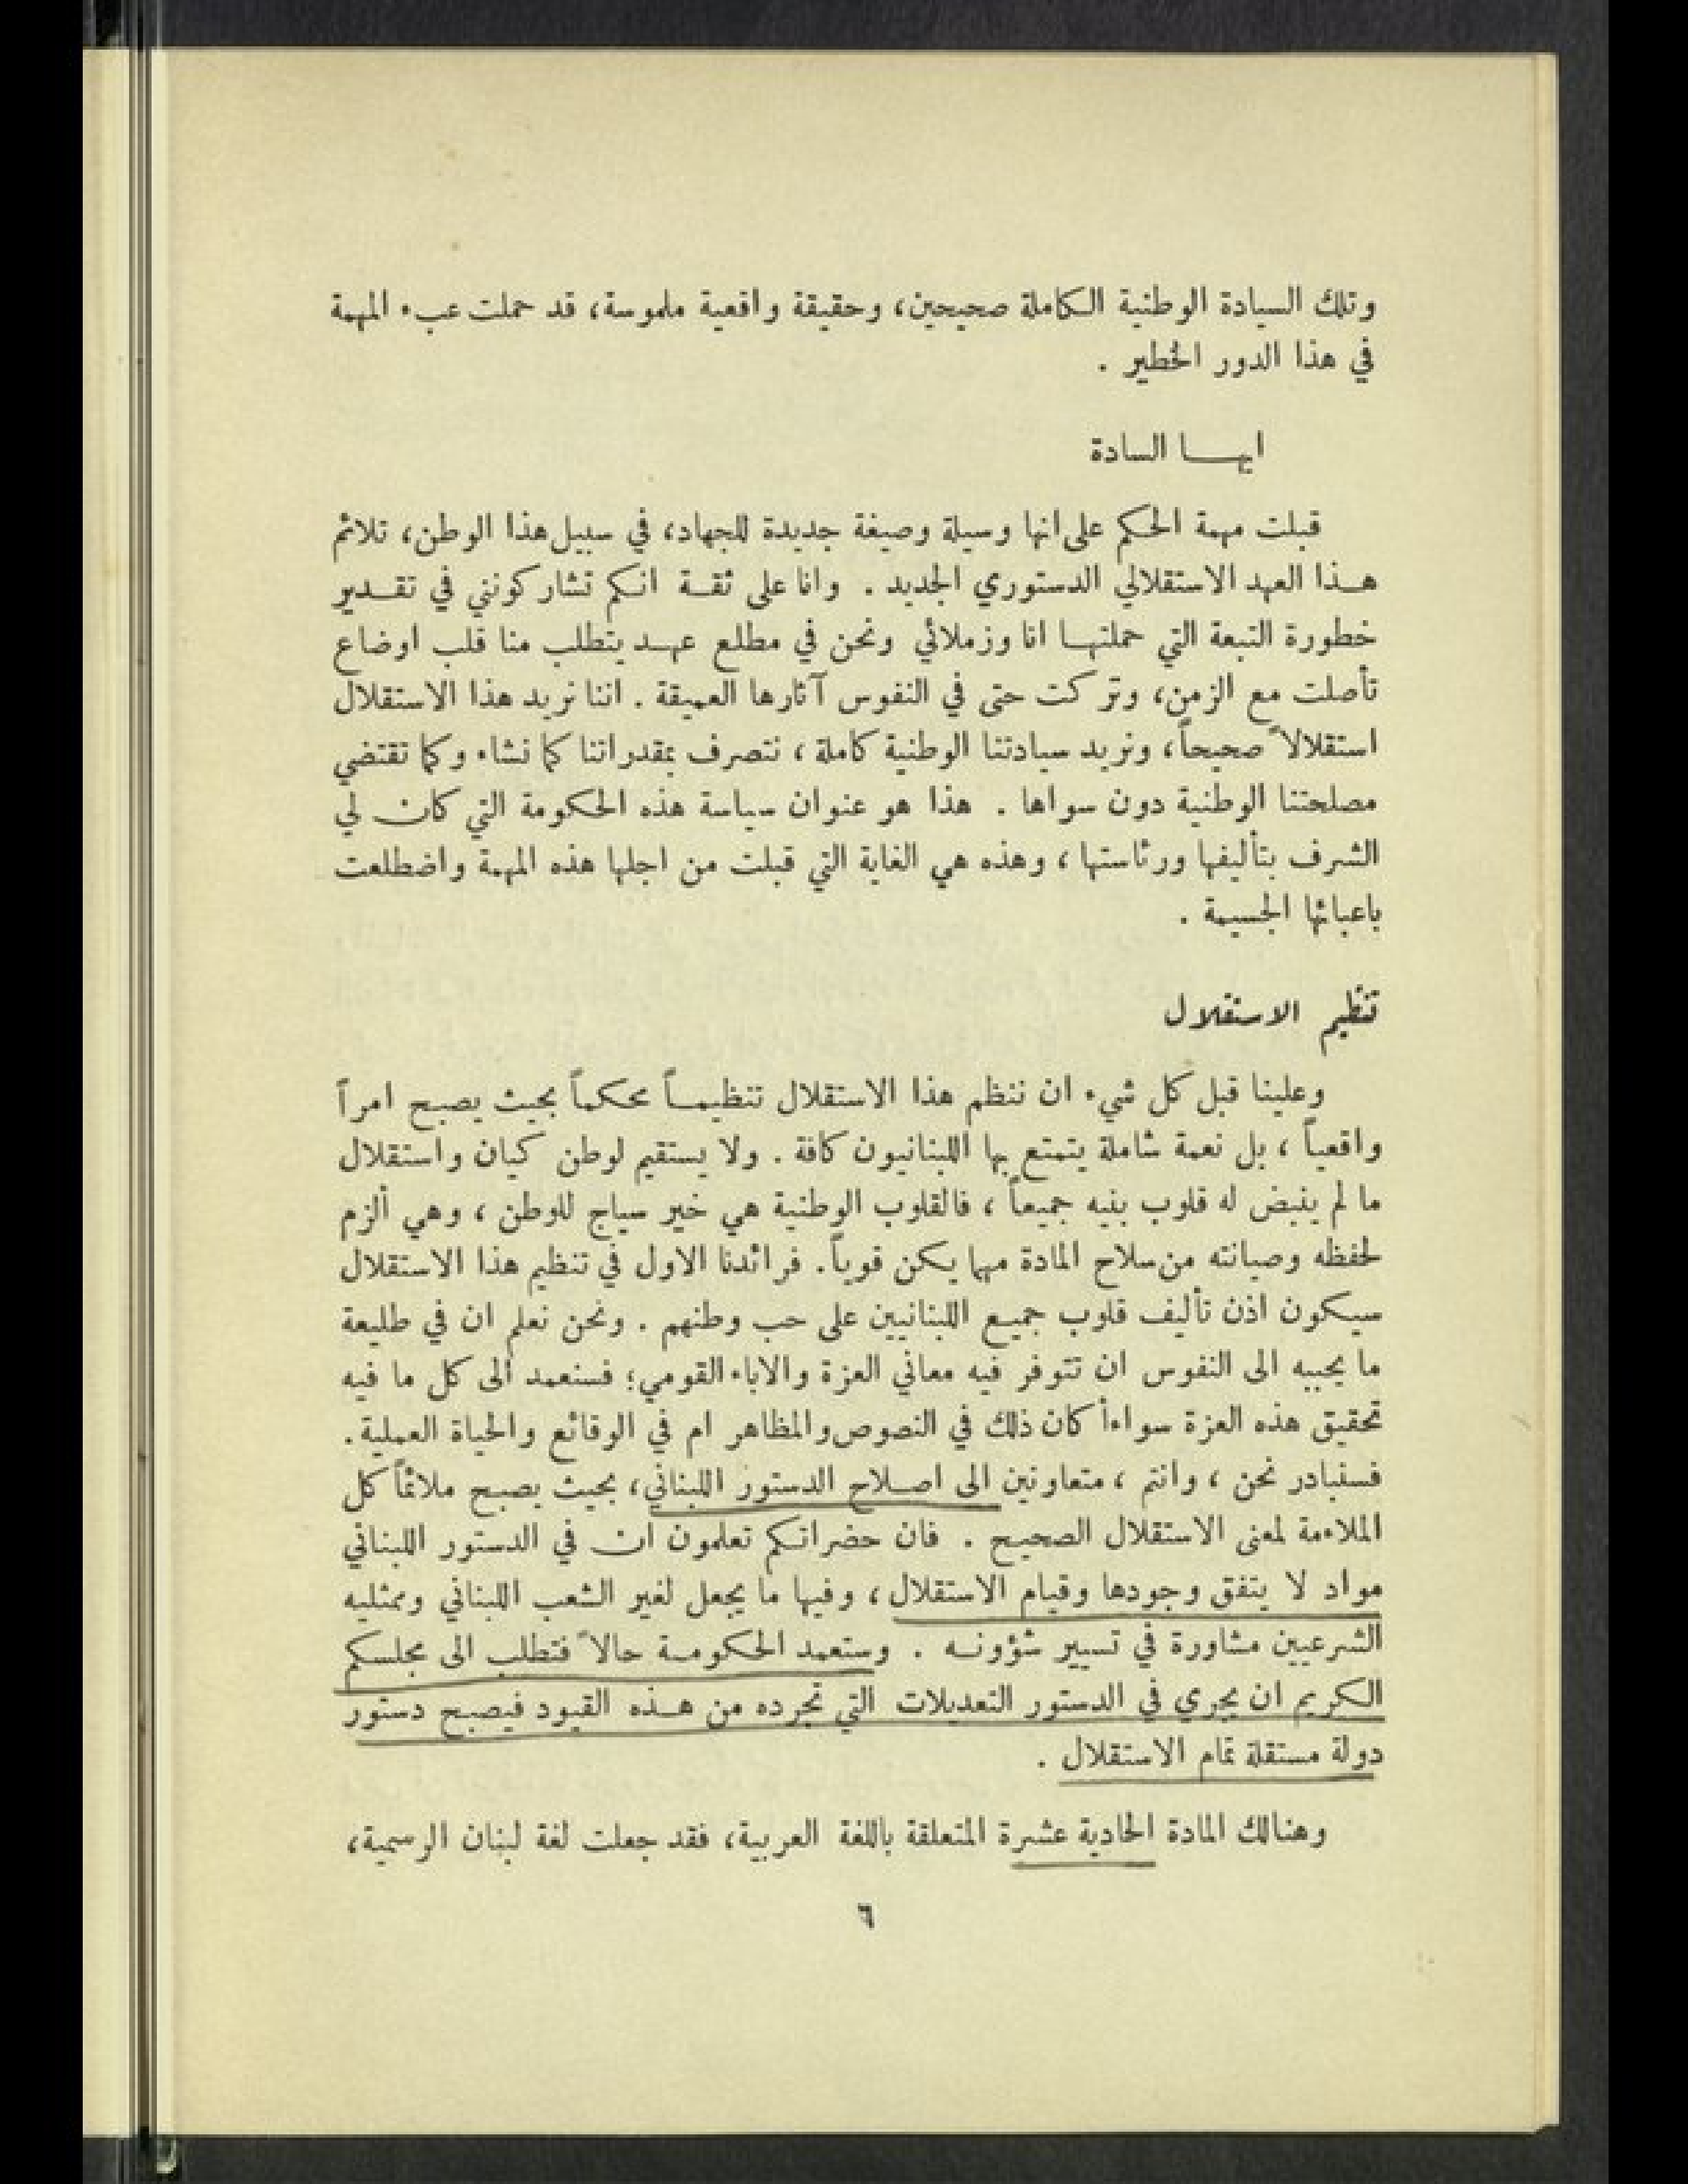 وتلك السيادة الوطنية الكاملة صحيحين، وحقيقة واقعية ملموسة، قد حملت عبء المهمة
في هذا الدور الخطير .
ايهـا السادة
قبلت مهمة الحكم على انها وسيلة وصيغة جديدة للجهاد، في سبيل هذا الوطن، تلائم
هـذا العهد الاستقلالي الدستوري الجديد . وانا على ثقـة انكم تشاركونني في تقـدير
خطورة التبعة التي حملتهـا انا وزملائي ونحن في مطلع عهـد يتطلب منا قلب اوضاع
تأصلت مع الزمن، وتركت حتى في النفوس آثارها العميقة . اننا نريد هذا الاستقلال
استقلالاً صحيحاً، ونريد سيادتنا الوطنية كاملة ، نتصرف بمقدراتنا كما نشاء وكما تقتضي
مصلحتنا الوطنية دون سواها . هذا هو عنوان سياسة هذه الحكومة التي كان لي
الشرف بتأليفها ورئاستها ، وهذه هي الغاية التي قبلت من اجلها هذه المهمة واضطلعت
باعبائها الجسيمة .
تنظيم الاستقلال
وعلينا قبل كل شيء ان ننظم هذا الاستقلال تنظيمـاً محكماً بحيث يصبح امراً
واقعياً ، بل نعمة شاملة يتمتع بها اللبنانيون كافة . ولا يستقيم لوطن كيان واستقلال
ما لم ينبض له قلوب بنيه جميعاً ، فالقلوب الوطنية هي خير سياج للوطن ، وهي ألزم
لحفظه وصيانته من سلاح المادة مهما يكن قوياً. فرائدنا الاول في تنظيم هذا الاستقلال
سيكون اذن تأليف قلوب جميع اللبنانيين على حب وطنهم . ونحن نعلم ان في طليعة
ما يحببه الى النفوس ان تتوفر فيه معاني العزة والاباء القومي؛ فسنعمد الى كل ما فيه
تحقيق هذه العزة سواءاً كان ذلك في النصوص والمظاهر ام في الوقائع والحياة العملية.
فسنبادر نحن ، وانتم ، متعاونين الى اصـلاح الدستور اللبناني، بحيث يصبح ملائماً كل
الملاءمة لمعنى الاستقلال الصحيح . فان حضراتكم تعلمون ان في الدستور اللبناني
مواد لا يتفق وجودها وقيام الاستقلال ، وفيها ما يجعل لغير الشعب اللبناني وممثليه
الشرعيين مشاورة في تسيير شؤونـه . وستعمد الحكومـة حالاً فتطلب الى مجلسكم
الكريم ان يجري في الدستور التعديلات التي تجرده من هـذه القيود فيصبح دستور
دولة مستقلة تمام الاستقلال .
وهنالك المادة الحادية عشرة المتعلقة باللغة العربية، فقد جعلت لغة لبنان الرسمية،
٦